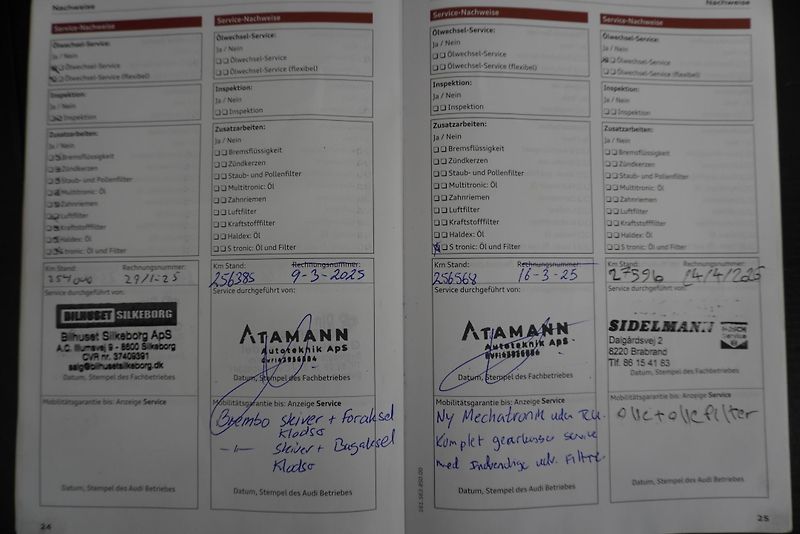 Nachweise
Service-Nachweise
Ölwechsel-Service:
Ja / Nein
Ölwechsel-Service
Ölwechsel-Service (flexibel)
Inspektion:
Ja / Nein
Inspektion
Zusatzarbeiten:
Ja / Nein
Bremsflüssigkeit
Zündkerzen
Staub- und Pollenfilter
Multitronic: Öl
Zahnriemen
Luftfilter
Kraftstofffilter
Haldex: Öl
S tronic: Öl und Filter
Km Stand:
Rechnungsnummer:
29/1-25
Service durchgeführt von:
BILHUSET SILKEBORG
Bilhuset Silkeborg ApS
A.C. Illumsvej 9 - 8600 Silkeborg
CVR nr. 37409391
salg@bilhusetsilkeborg.dk
Datum, Stempel des Fachbetriebes
Mobilitätsgarantie bis: Anzeige Service
Datum, Stempel des Audi Betriebes
24
Service-Nachweise
Ölwechsel-Service:
Ja / Nein
Ölwechsel-Service
Ölwechsel-Service (flexibel)
Inspektion:
Ja / Nein
Inspektion
Zusatzarbeiten:
Ja / Nein
Bremsflüssigkeit
Zündkerzen
Staub- und Pollenfilter
Multitronic: Öl
Zahnriemen
Luftfilter
Kraftstofffilter
Haldex: Öl
S tronic: Öl und Filter
Km Stand:
Rechnungsnummer:
256385 9-3-2025
Service durchgeführt von:
ATAMANN
Autoteknik ApS
Datum, Stempel des Fachbetriebes
Mobilitätsgarantie bis: Anzeige Service
Brembo skiver + Foraksel
Klodser
-11- skiver + Bagaksel
Klodser
Datum, Stempel des Audi Betriebes
Nachweise
Service-Nachweise
Ölwechsel-Service:
Ja / Nein
Ölwechsel-Service
Ölwechsel-Service (flexibel)
Inspektion:
Ja / Nein
Inspektion
Zusatzarbeiten:
Ja / Nein
Bremsflüssigkeit
Zündkerzen
Staub- und Pollenfilter
Multitronic: Öl
Zahnriemen
Luftfilter
Kraftstofffilter
Haldex: Öl
S tronic: Öl und Filter
Km Stand:
Rechnungsnummer:
256568 16-3-25
Service durchgeführt von:
ATAMANN
Autoteknik ApS
Datum, Stempel des Fachbetriebes
Mobilitätsgarantie bis: Anzeige Service
Ny Mechatronik uden
Komplet gearkasser service
med Indvendige udv. Filtre
Datum, Stempel des Audi Betriebes
Service-Nachweise
Ölwechsel-Service:
Ja / Nein
Ölwechsel-Service
Ölwechsel-Service (flexibel)
Inspektion:
Ja / Nein
Inspektion
Zusatzarbeiten:
Ja / Nein
Bremsflüssigkeit
Zündkerzen
Staub- und Pollenfilter
Multitronic: Öl
Zahnriemen
Luftfilter
Kraftstofffilter
Haldex: Öl
S tronic: Öl und Filter
Km Stand:
Rechnungsnummer:
14/4/2025
Service durchgeführt von:
SIDELMANN
Dalgårdsvej 2
8220 Brabrand
Tlf. 86 15 41 83
Datum, Stempel des Fachbetriebes
Mobilitätsgarantie bis: Anzeige Service
olie + oliefilter
Datum, Stempel des Audi Betriebes
25